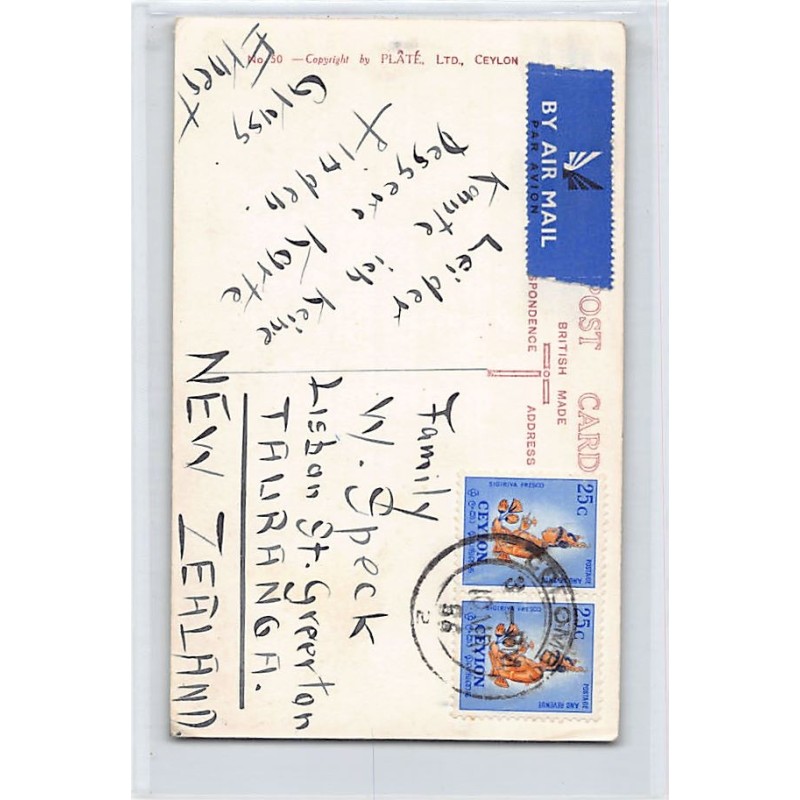 No 50 — Copyright by PLÂTÉ, LTD., CEYLON
BY AIR MAIL
PAR AVION
POST CARD
BRITISH MADE
SPONDENCE
ADDRESS
Leider
konnte ich keine
bessere Karte
finden.
Gruss
Ernst
Family
W. Speck
Lisbon St. Greerton
TAURANGA.
NEW ZEALAND
25c
POSTAGE
AND REVENUE
CEYLON
25c
POSTAGE
AND REVENUE
CEYLON
COLOMBO
56
2